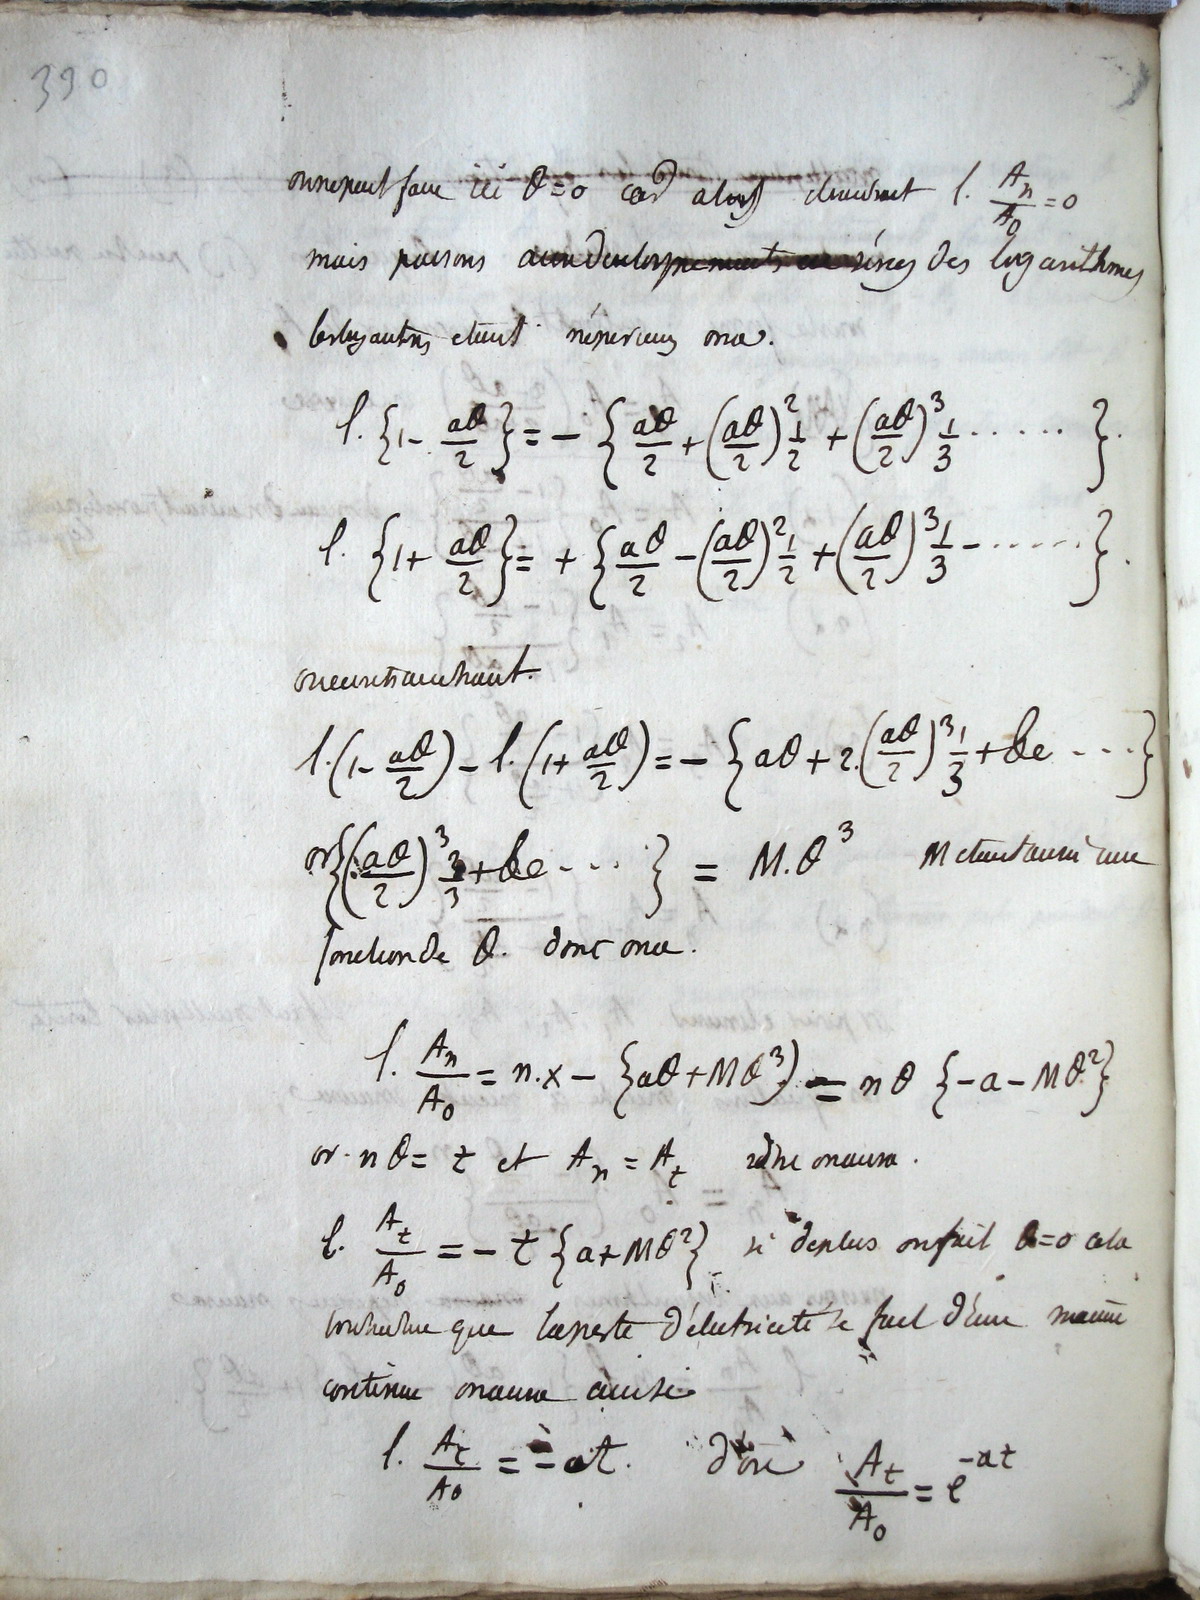 390
on ne peut faire ici θ=0 car alors l. A_n/A_0 = 0
mais passons aux developpements en séries des logarithmes
étant népériens on a.
l. {1 - aθ/2} = - {aθ/2 + (aθ/2)² 1/2 + (aθ/2)³ 1/3 ...... }.
l. {1 + aθ/2} = + {aθ/2 - (aθ/2)² 1/2 + (aθ/2)³ 1/3 - ...... }.
on en retranchant.
l.(1 - aθ/2) - l.(1 + aθ/2) = - {aθ + 2.(aθ/2)³ 1/3 + &c ....}
or {(aθ/2)³ 2/3 + &c .... } = M.θ³ M étant aussi une
fonction de θ. donc on a.
l. A_n/A_0 = n.x - {aθ + Mθ³) = nθ {-a - Mθ²}
or nθ = t et A_n = A_t donc on aura.
l. A_t/A_0 = - t {a + Mθ²} si de plus on fait θ=0 cela
que la perte d'électricité se fait d'une manière
continue on aura ainsi
l. A_t/A_0 = - at. d'où A_t/A_0 = e^{-at}